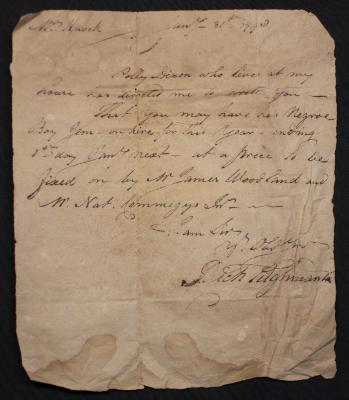 Mr. Knock
Jany. 8th. 1798
Polly Dixon who lives at my
house has directed me to write you —
That you may have her Negroe
Boy Jem - on hire for this Year - ending
1st day Jany. next - at a price to be
fixed on by Mr James Woodland and
Mr. Nat. Commegys Jnr —
I am Sir
Yr. Obt.
Tilghman